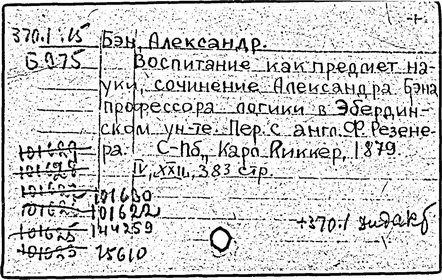 370.1:15 Бэн, Александр.
Б975 Воспитание как предмет на-
уки, сочинение Александра Бэна
профессора логики в Эбердин-
ском ун-те. Пер. с англ. Ф. Резене-
ра. С-Пб., Карл Риккер, 1879
IV, XXII, 383 стр.
101630
101622
144259
+370.1 дидакт
15610